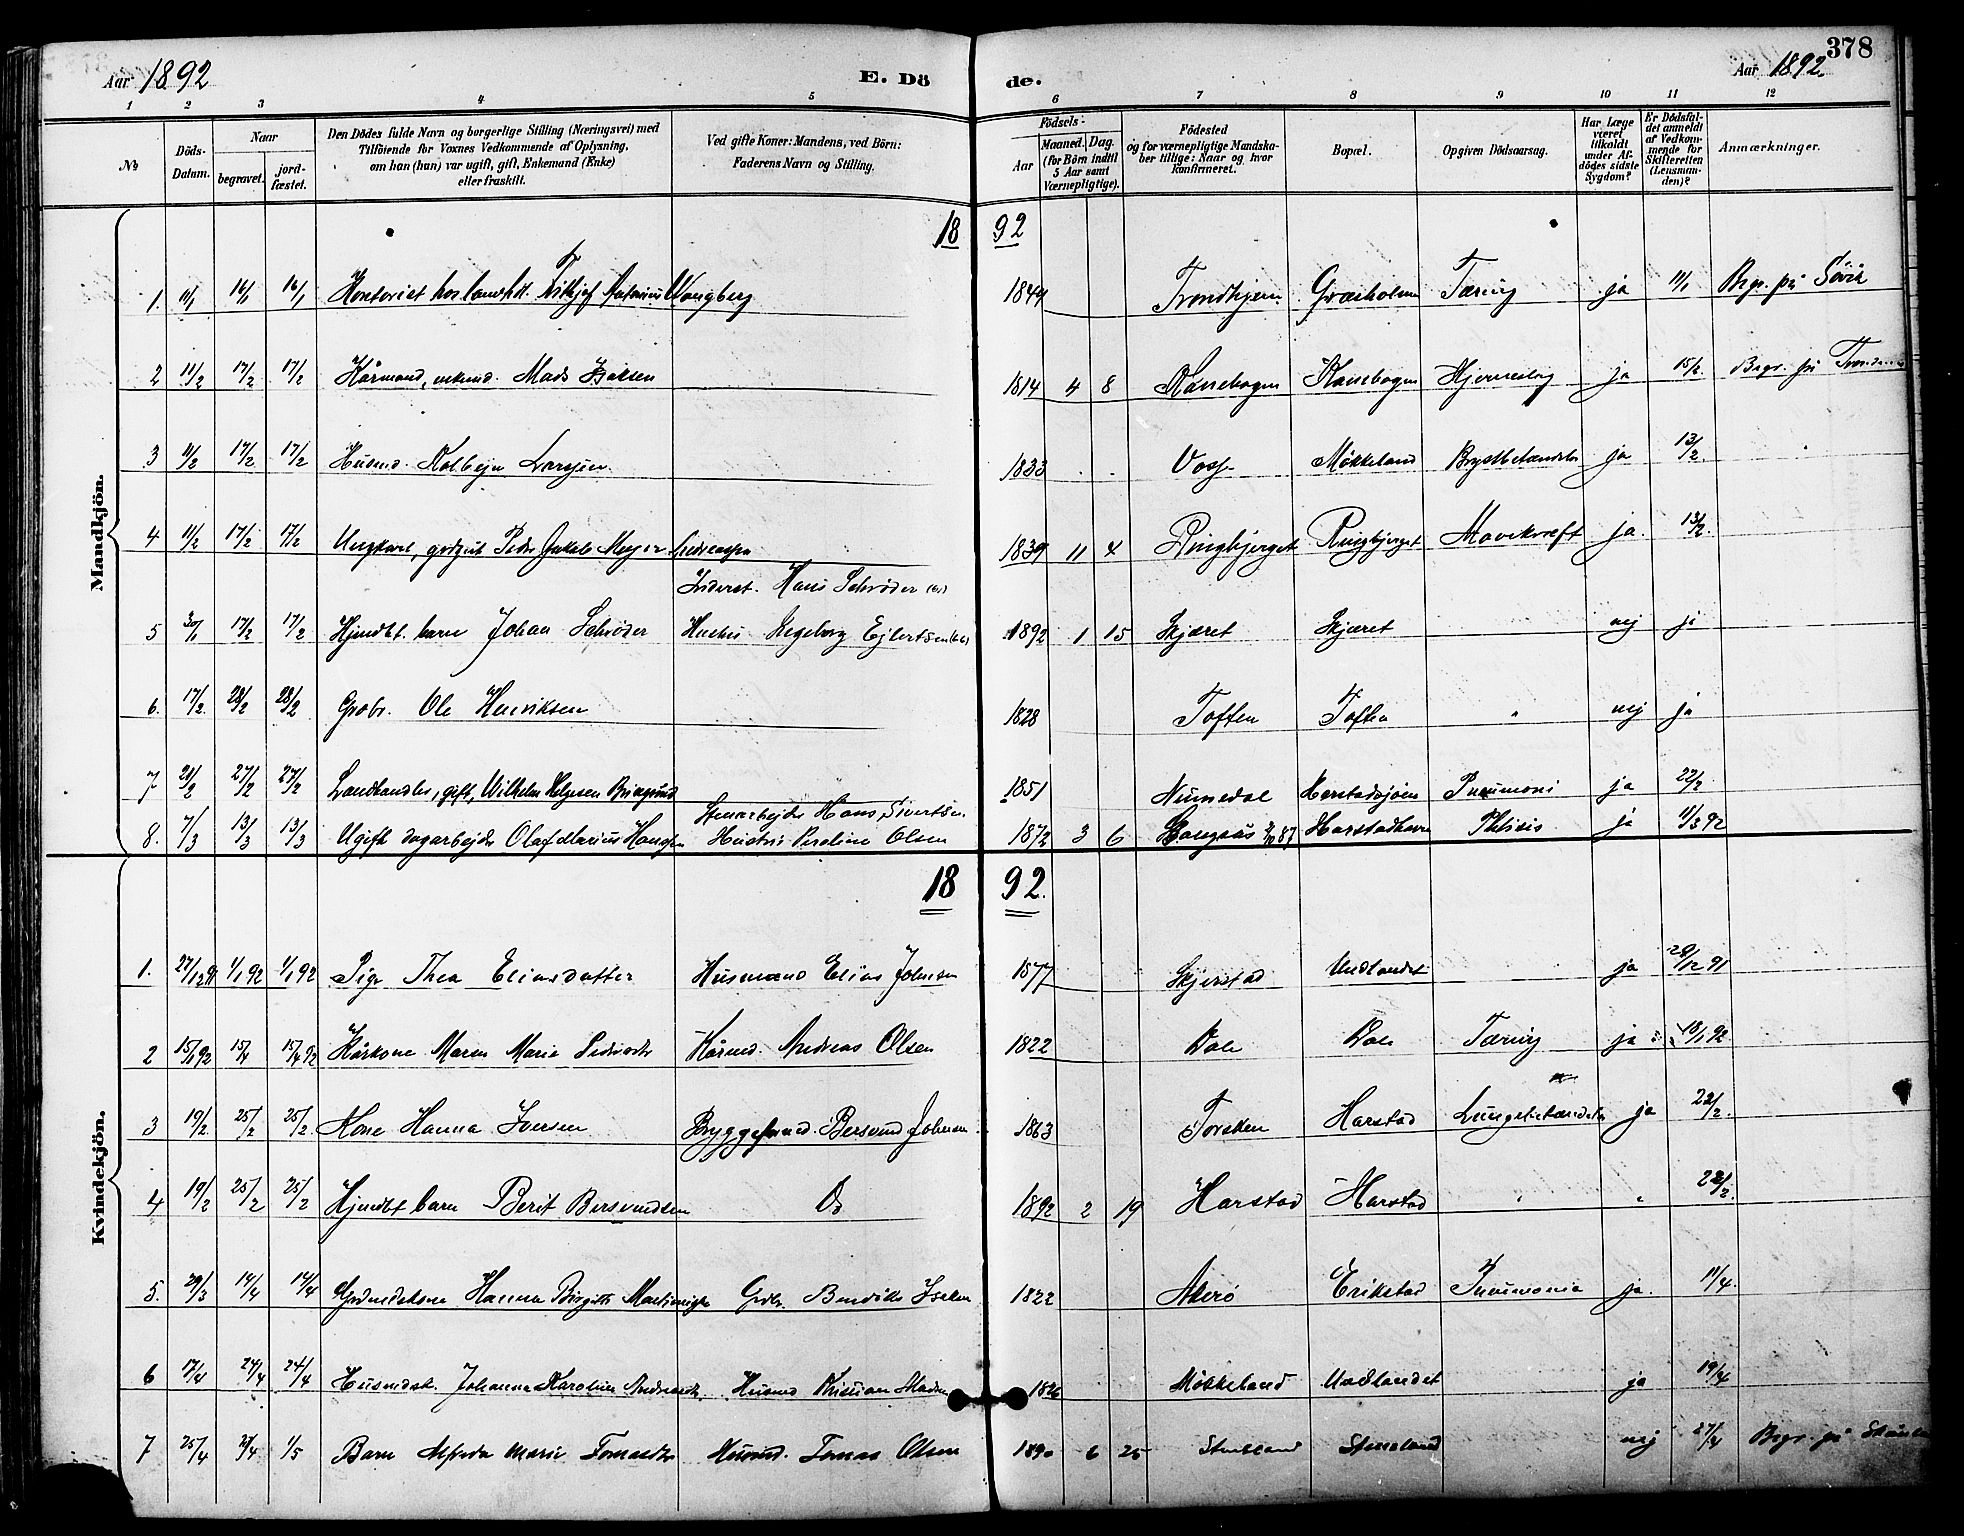 378
Aar 1892 E. Dö de. Aar 1892.
1 2 3 4 5 6 7 8 9 10 11 12
№ Döds-Datum. Naar begravet. jordfæstet. Den Dödes fulde Navn og borgerlige Stilling (Næringsvei) med Tilföiende for Voxnes Vedkommende af Oplysning, om han (hun) var ugift, gift, Enkemand (Enke) eller fraskilt. Ved gifte Koner: Mandens, ved Börn: Faderens Navn og Stilling. Födsels- Aar Maaned. Dag. (for Börn indtil 5 Aar samt Værnepligtige). Födested og for værnepligtige Mandskaber tillige: Naar og hvor konfirmeret. Bopæl. Opgiven Dödsaarsag. Har Læge været tilkaldt under Afdödes sidste Sygdom? Er Dödsfaldet anmeldt af Vedkommende for Skifteretten (Lensmanden)? Anmærkninger.
Mandkjön.
18 92
1. 11/1 16/1 16/1 Kontorist hos landh. Wangberg 1849 Trondhjem Græsholmen Tæring ja 11/1 Begr. på Sörvik
2 11/2 17/2 17/2 Kårmand, enkemd. Mads Isaksen 1814 4 8 Kanebogen Kanebogen Hjerneslag ja 15/2 Begr. på
3 11/2 17/2 17/2 Husmd. Kolbejn Larsen 1833 Voss Møkkeland ja 13/2
4 11/2 17/2 17/2 Ungkarl, Peder Jakob Meyer Andreassen 1839 11 4 Ringbjerget Ringbjerget Mavekræft ja. 13/2.
Inderst. Hans Schrøder
5 30/1 17/2 17/2 Hjemdbt. barn Johan Schrøder Hustru Ingeborg Ejlertsen 1892 1 15 Skjæret Skjæret nej ja
6. 17/2. 28/2 28/2 Grobr. Ole Henriksen 1828 Toften Toften " nej ja
7 21/2 27/2 27/2 Landhandler, gift, Wilhelm 1851 Numedal Harstadsjøen Pneumoni ja 22/2
Stenarbejder Hans Sivertsen
8. 7/3 13/3 13/3 Ugift dagarbejder Olaf Marius Hansen Hustru Olsen 1872 3 6 87 Harstadhavn Phtisis ja 11/3 92
Kvindekjön.
18 92.
1. 27/12 91 1/1 92 1/1 92 Pige Thea Eliasdatter Husmand Elias Johnsen 1877 Skjerstad Undlandet ja 28/12 91
2 15/1 92 15/4 15/4 92 Kårkone Maren Marie Pedersdtr Kårmd. Andreas Olsen 1822 Dale Dale Tæring ja 18/1 92
3 19/2 25/2 25/2 Kone Hanna Iversen Bryggeformd. Bersvend Johnsen 1863 Torsken Harstad Lungebetændelse ja 22/2.
4 19/2 25/2 25/2 Hjemdbt barn Berit Bersvendsen Do 1892 2 19 Harstad Harstad " " 22/2.
5. 29/3 14/4 14/4 Hanna Birgitte Grdbr. Bendik Isaksen 1822 Akerö Erikstad Pneumonia ja. 11/4.
6 17/4 24/4 24/4 Husmdsk. Johanna Karoline Andreasdtr. Husmd Kristian 1826 Møkkeland Undlandet ja 19/4
7 25/4 1/5 Barn Alfrida Marie Tomasdtr Husmd. Tomas Olsen 1890 6 25 Stensland Stensland nej 27/4 Begr. på